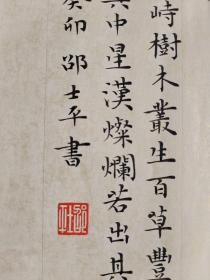 峙樹木叢生百草豐
其中星漢燦爛若出其
癸卯邵士平書